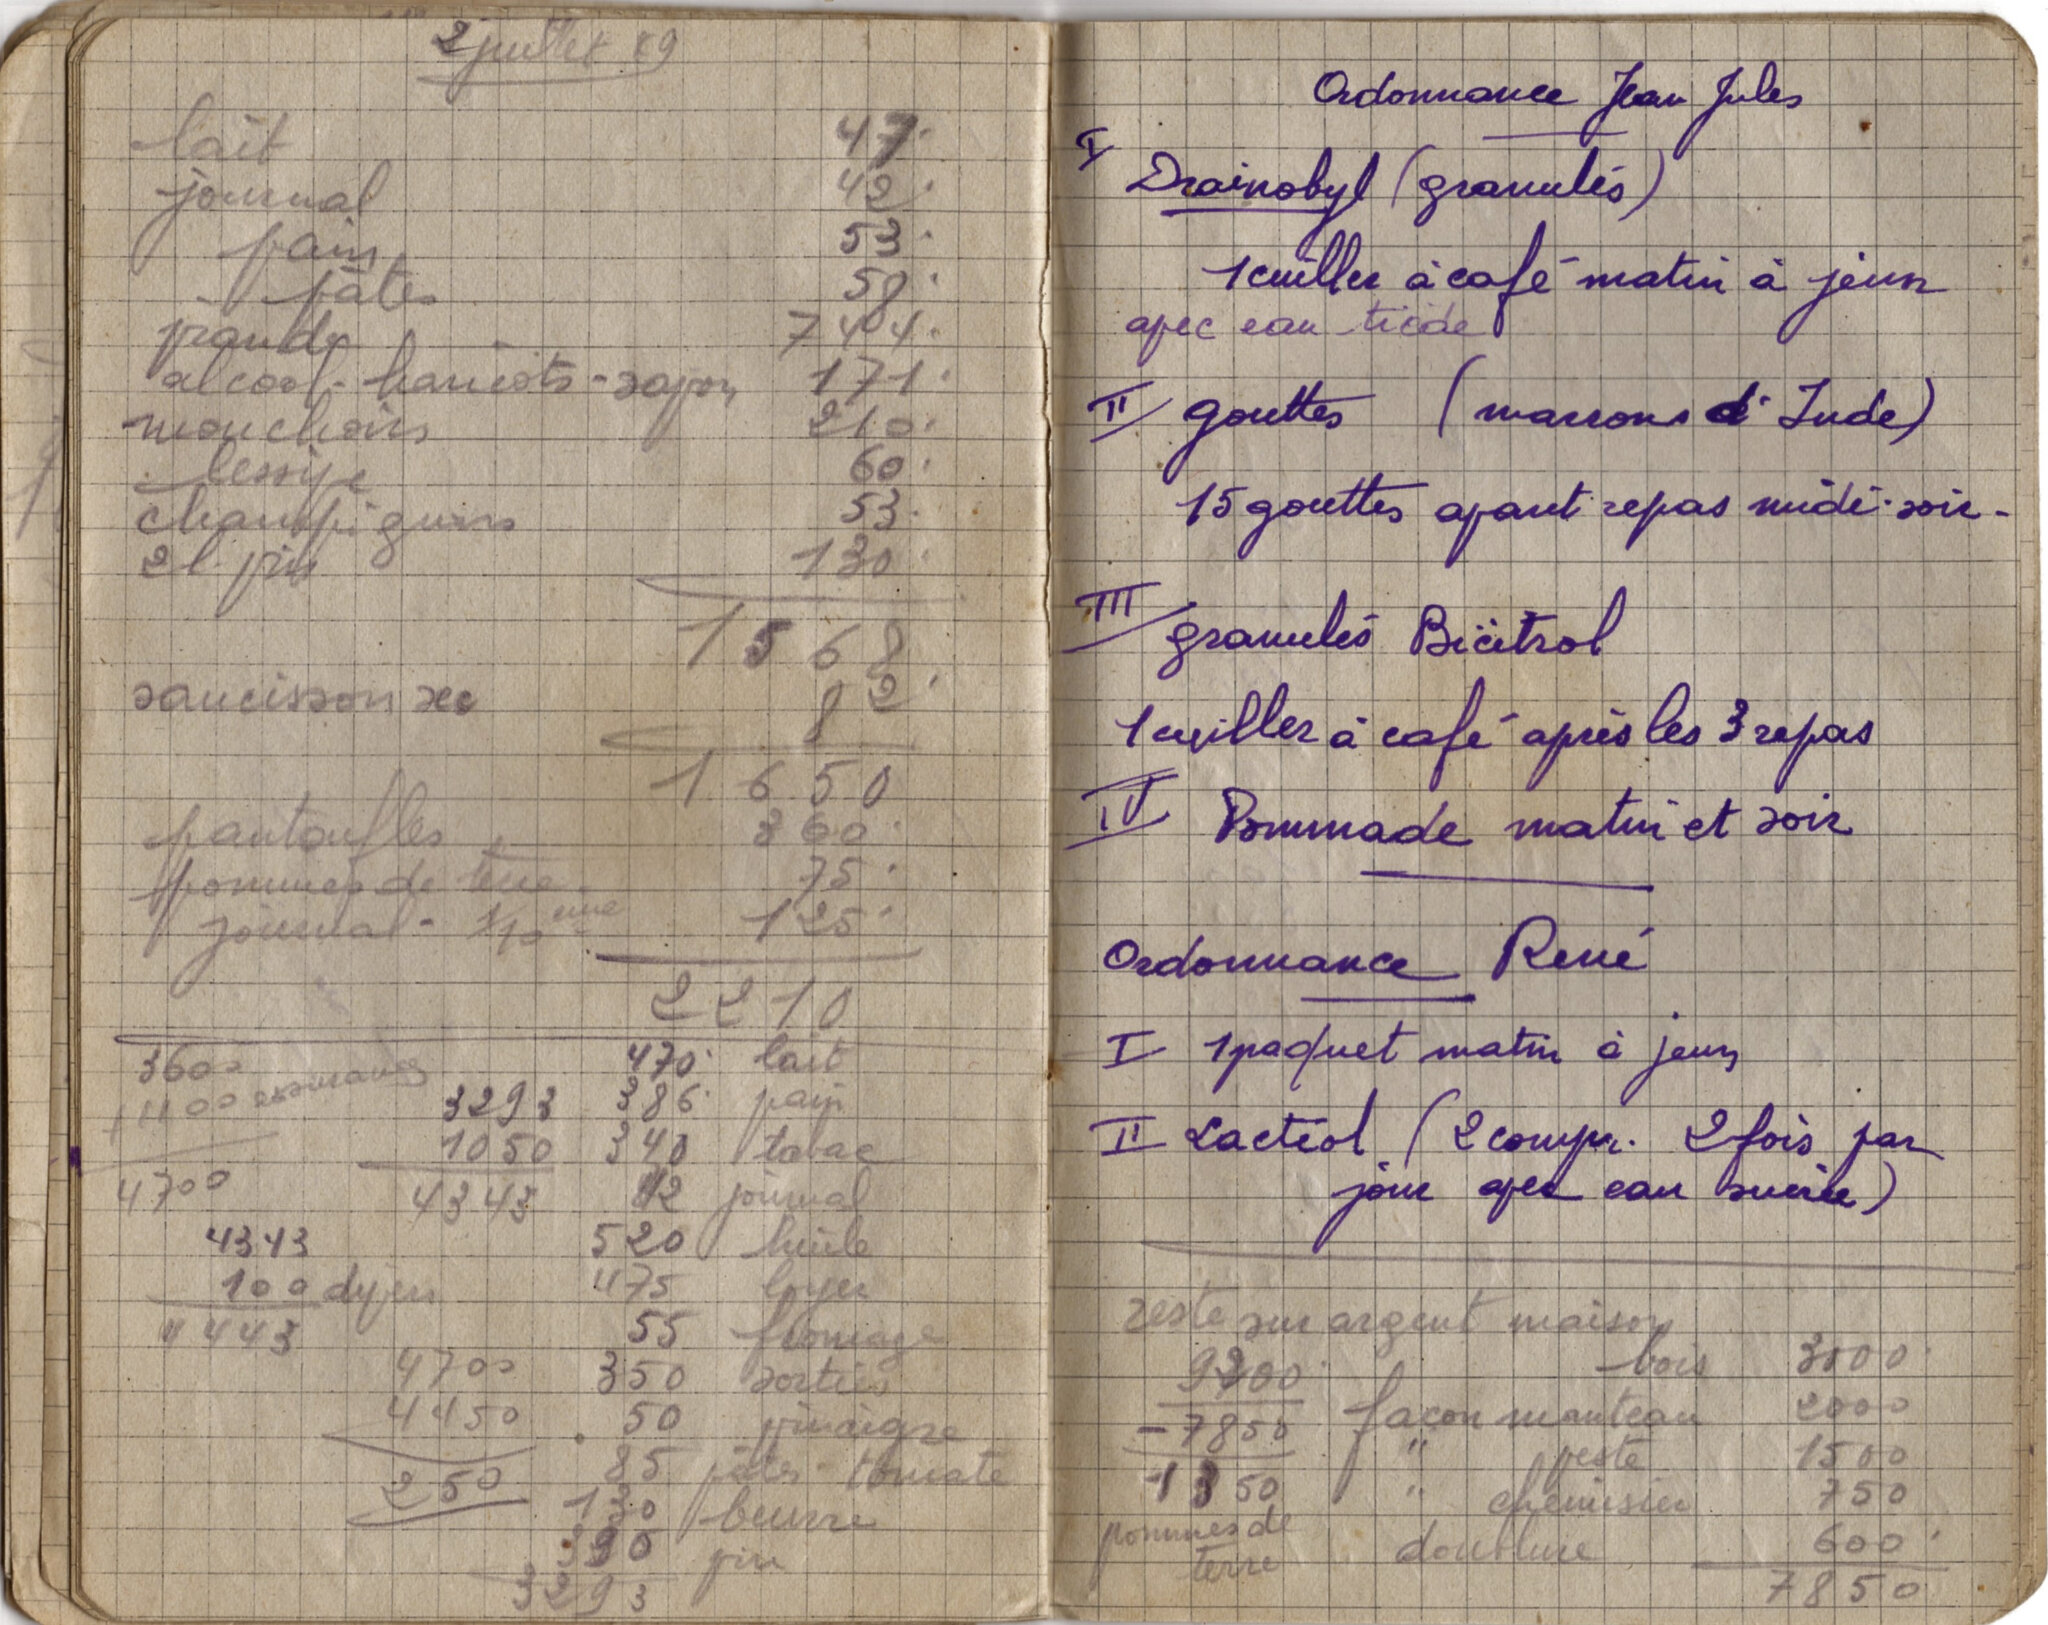 2 juillet 49
lait 47
journal 42
pain 53
pâtes 58
viande 744
alcool - haricots - savon 171
mouchoirs 210
lessive 60
champignons 53
2 l vin 130
1568
saucisson sec 82
1650
pantoufles 360
pommes de terre 75
journal - 125
2210
3600
1100
4700
3293
1050
4343
4343
100
4443
4700
4450
250
470 lait
386 pain
340 tabac
42 journal
520 huile
475 loyer
55 fromage
350 sorties
50 vinaigre
85 pâtes - tomate
130 beurre
390 vin
3293
Ordonnance Jean Jules
I Drainobyl (granulés)
1 cuiller à café matin à jeun
avec eau tiède
II gouttes (marrons d'Inde)
15 gouttes avant repas midi - soir -
III granulés Bicitrol
1 cuiller à café après les 3 repas
IV Pommade matin et soir
Ordonnance René
I 1 paquet matin à jeun
II Lactéol (2 compr. 2 fois par
jour avec eau sucrée)
reste sur argent maison
9200
- 7850
1350
pommes de
terre
bois 3000
façon manteau 2000
" veste 1500
" chemisier 750
doublure 600
7850